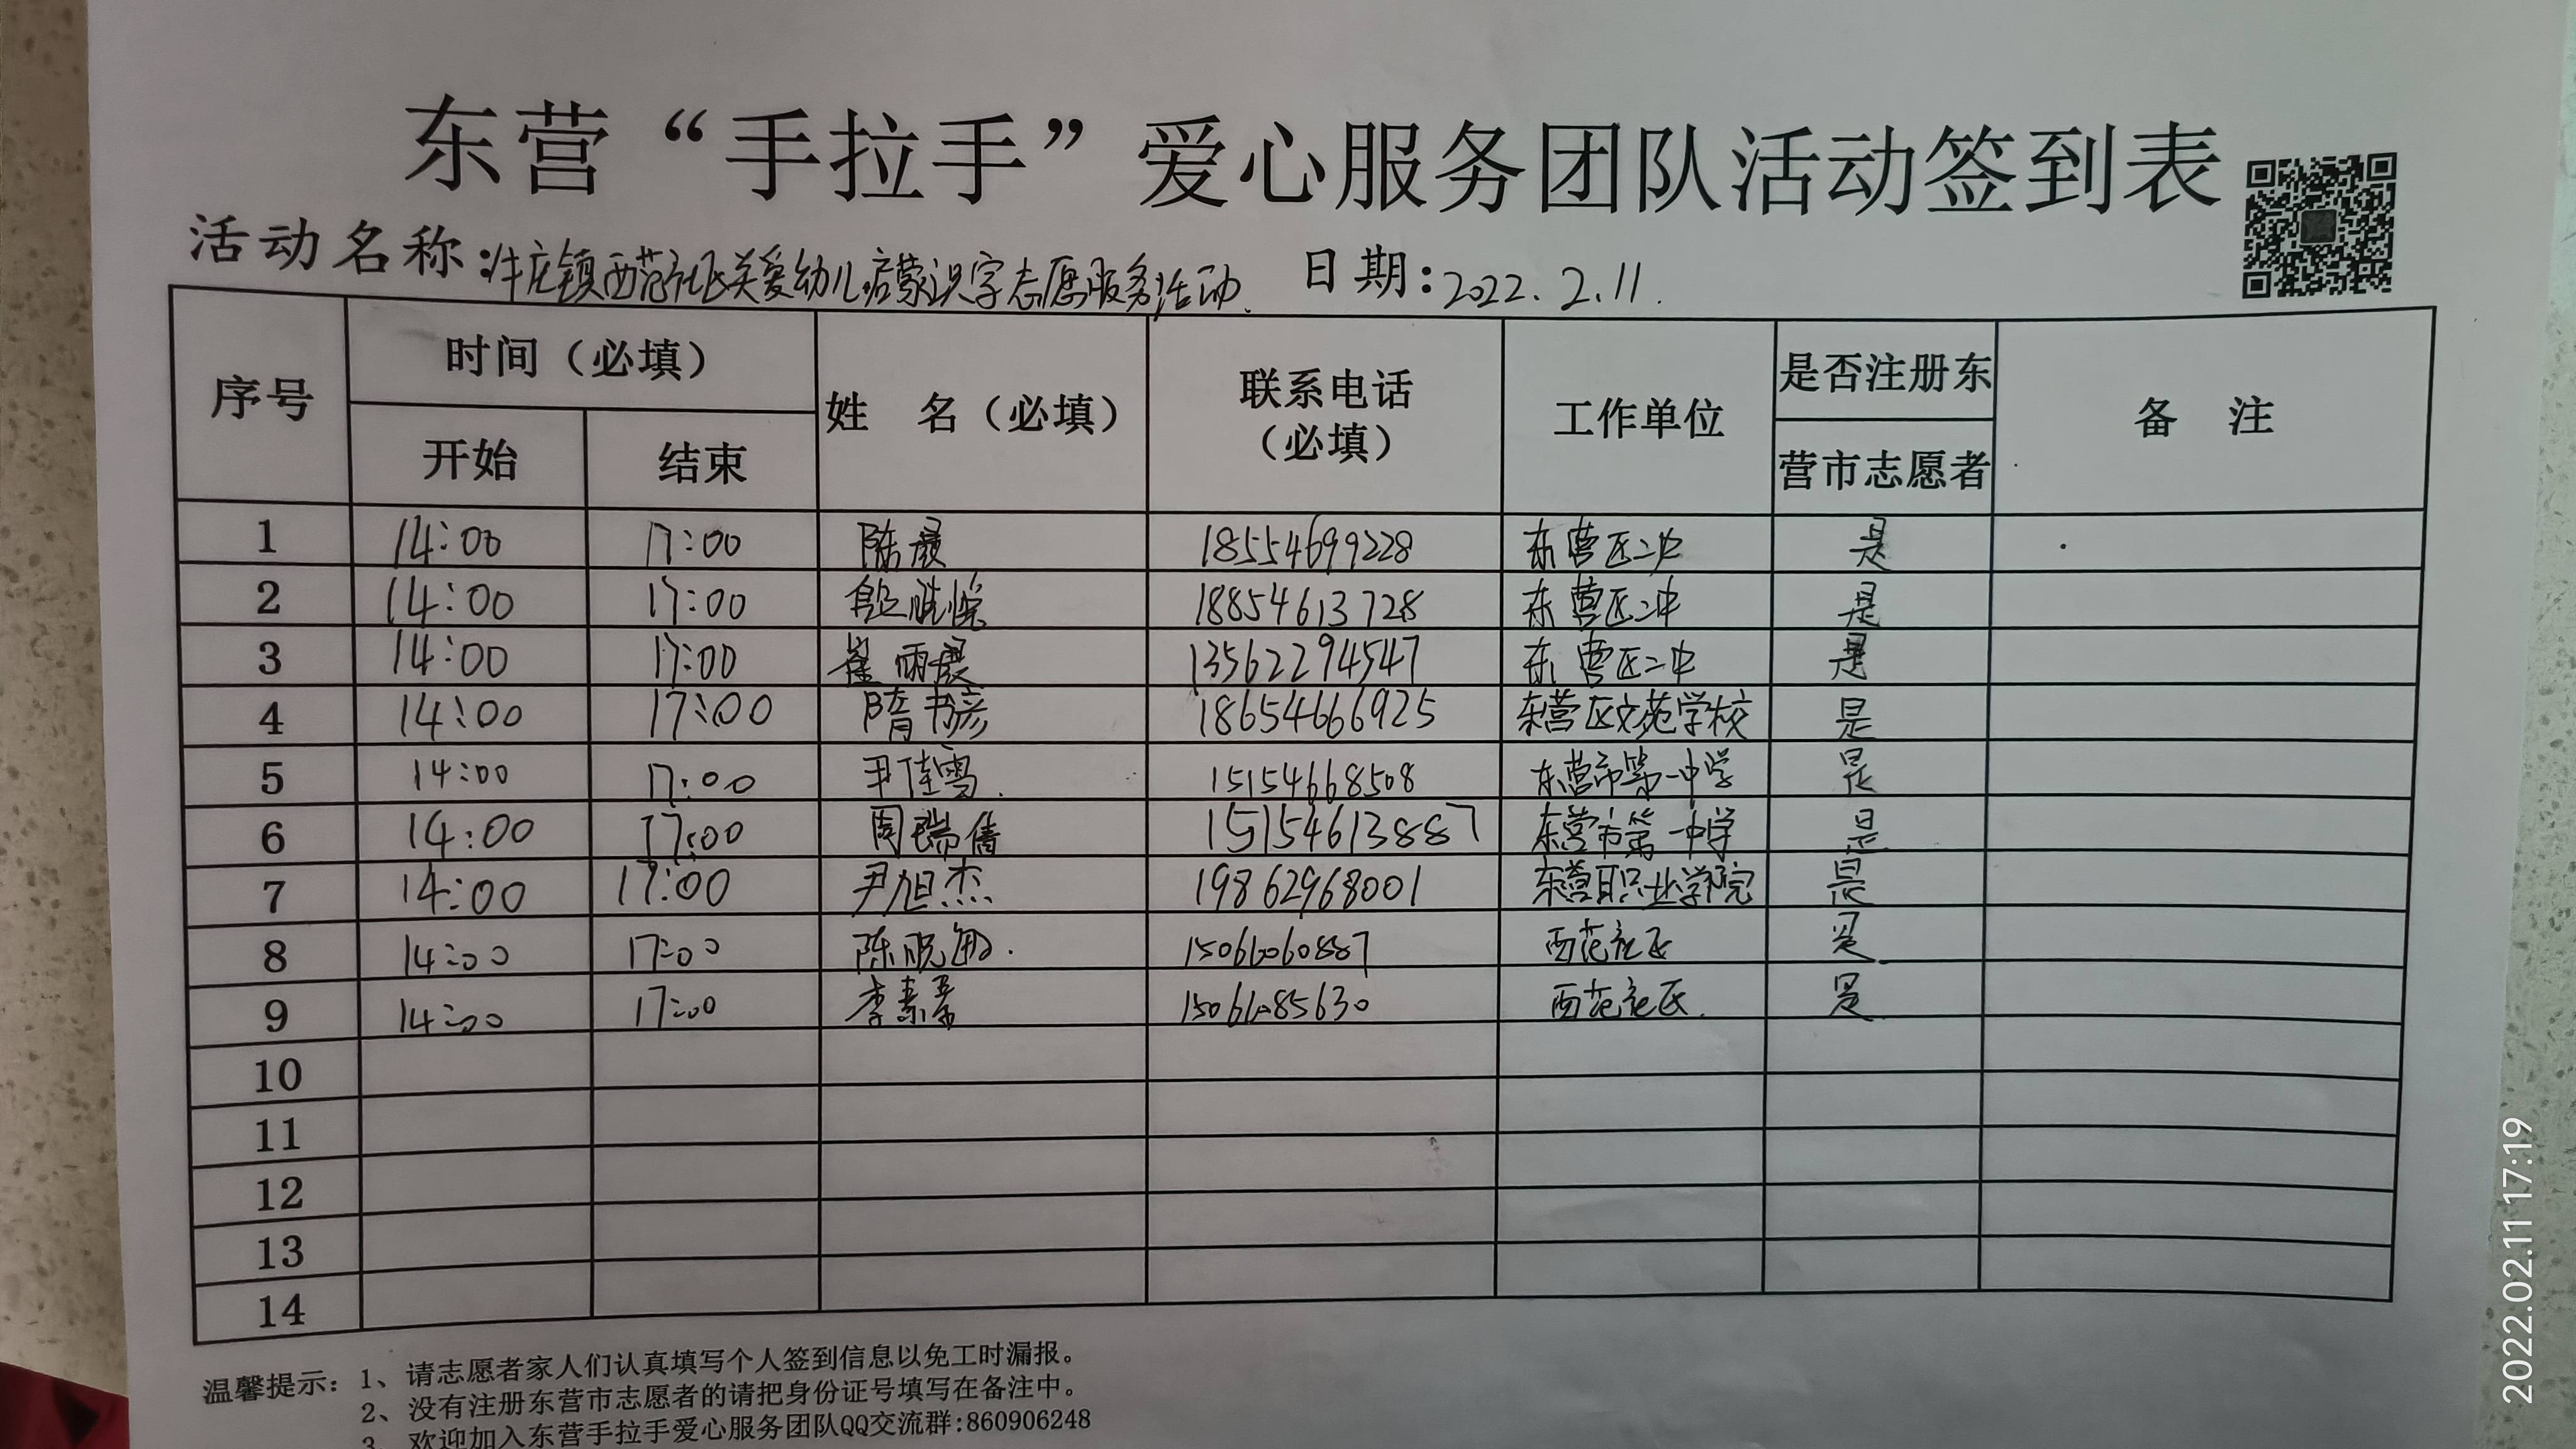 东营“手拉手”爱心服务团队活动签到表
活动名称:牛庄镇西范社区关爱幼儿启蒙识字志愿服务活动. 日期:2022.2.11.
序号 时间（必填） 姓 名（必填） 联系电话（必填） 工作单位 是否注册东营市志愿者 备 注
开始 结束
1 14:00 17:00 陈晨 18554699228 东营区二中 是
2 14:00 17:00 18854613728 东营区二中 是
3 14:00 17:00 崔雨晨 13562294547 东营区二中 是
4 14:00 17:00 隋书彦 18654666925 东营区文苑学校 是
5 14:00 17:00 尹佳雪. 15154668508 东营市第一中学 是
6 14:00 17:00 周瑞倩 15154613887 东营市第一中学 是
7 14:00 17:00 尹旭杰 19862968001 东营职业学院 是
8 14:00 17:00 陈晓敏. 15061060887 西范社区 是
9 14:00 17:00 李素 西范社区. 是
10
11
12
13
14
温馨提示：1、请志愿者家人们认真填写个人签到信息以免工时漏报。
2、没有注册东营市志愿者的请把身份证号填写在备注中。
3、欢迎加入东营手拉手爱心服务团队QQ交流群:860906248
2022.02.11 17:19